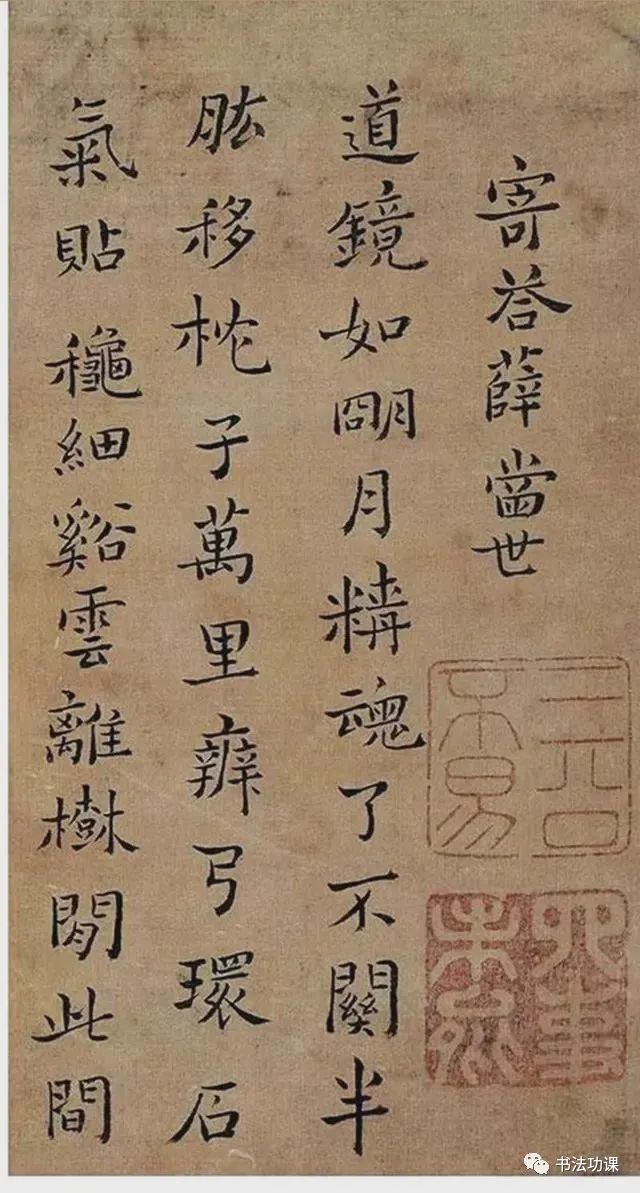 寄荅薛當世
道鏡如朙月精魂了不關半
肱移枕子萬里辨弓環石
氣貼龝細谿雲離樹閒此間
书法功课